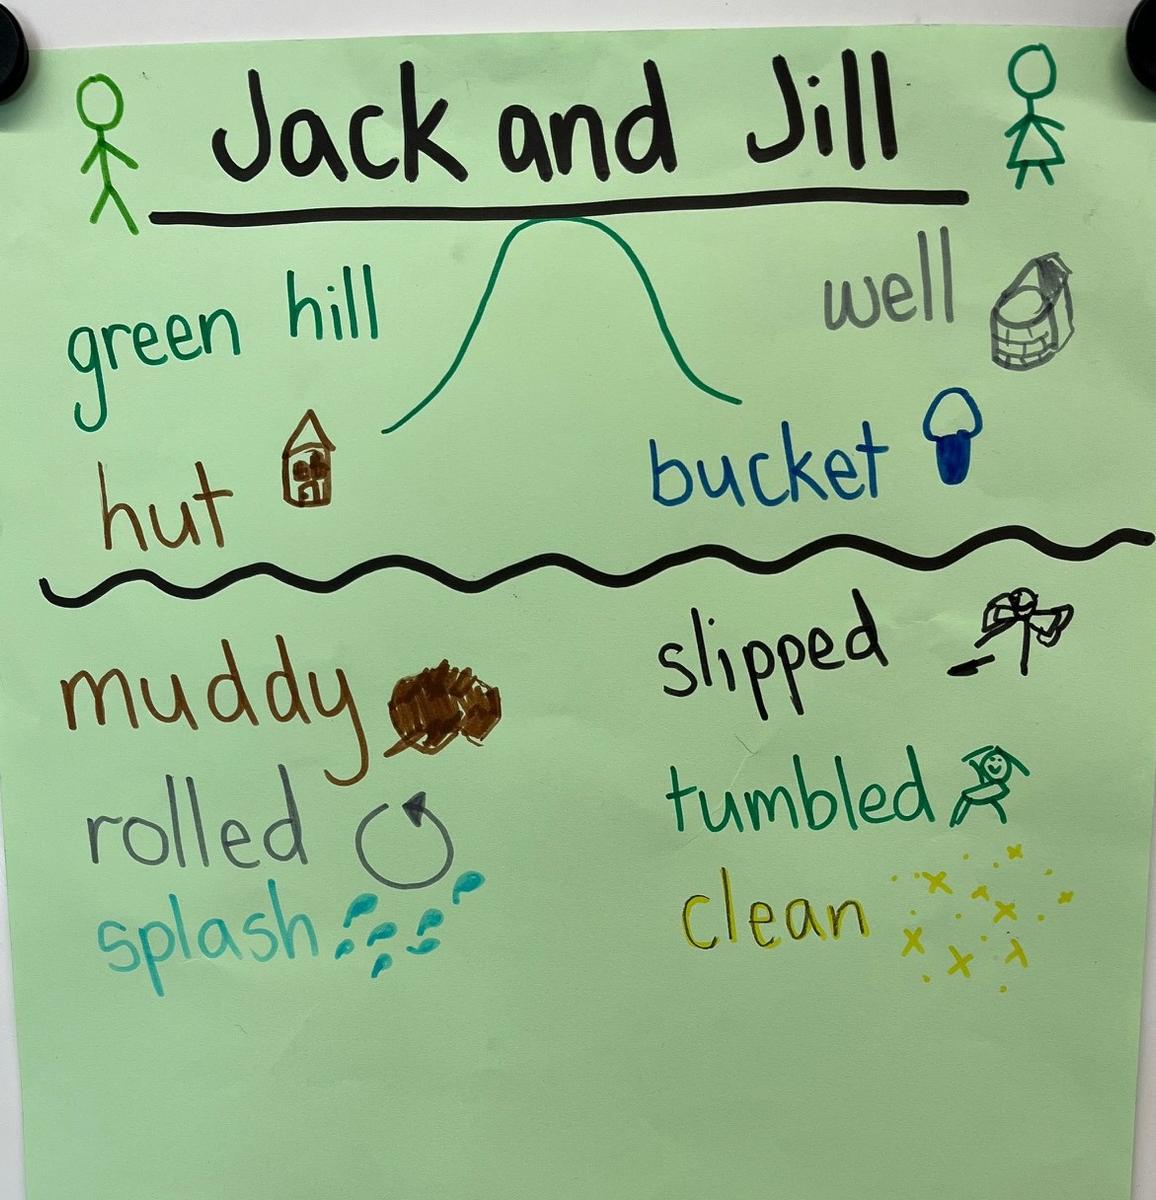 Jack and Jill
green hill
well
hut
bucket
muddy
slipped
rolled
tumbled
splash
clean